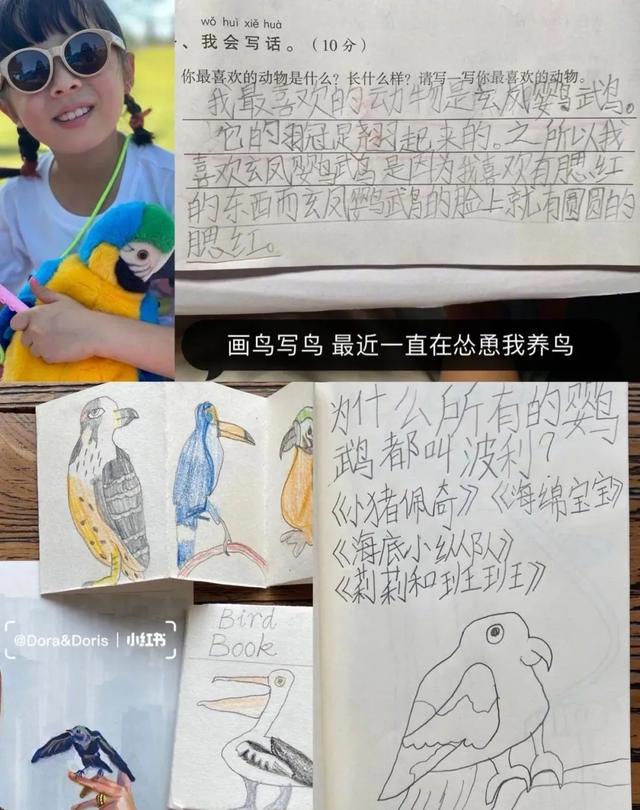 wǒ huì xiě huà
、我会写话。（10分）
你最喜欢的动物是什么？长什么样？请写一写你最喜欢的动物。
我最喜欢的动物是玄凤鹦鹉。
它的羽冠是翘起来的。之所以我
喜欢玄凤鹦鹉是因为我喜欢有腮红
的东西而玄凤鹦鹉的脸上就有圆圆的
腮红。
画鸟写鸟 最近一直在怂恿我养鸟
为什么所有的鹦
鹉都叫波利？
《小猪佩奇》《海绵宝宝》
《海底小纵队》
《莉莉和班班班》
@Dora&Doris | 小红书
Bird
Book